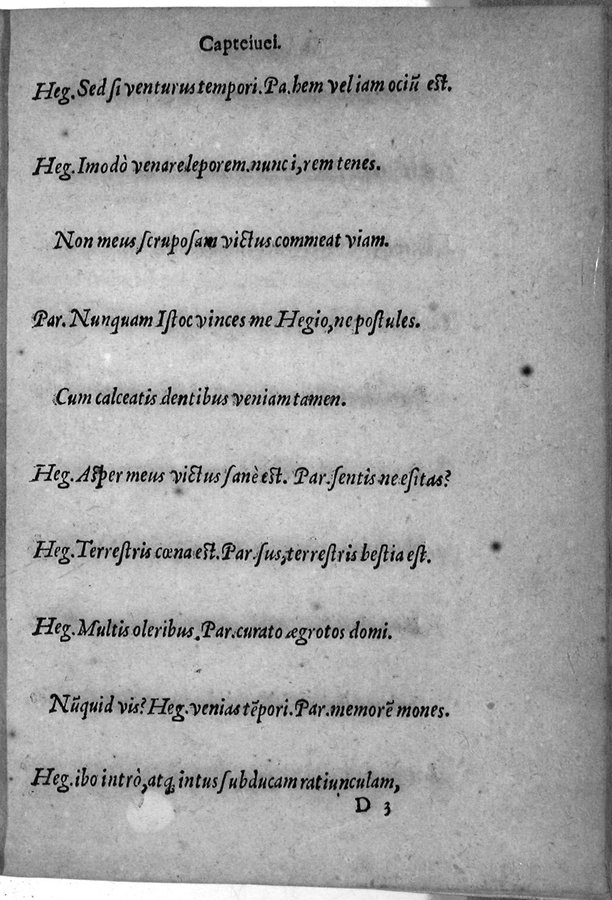 Capteiuei.
Heg. Sed si venturus tempori. Pa. hem vel iam ociũ est.
Heg. Imodò venare leporem. nunc i, rem tenes.
Non meus scruposam victus commeat viam.
Par. Nunquam Istoc vinces me Hegio, ne postules.
Cum calceatis dentibus veniam tamen.
Heg. Asper meus victus sanè est. Par. sentis ne esitas?
Heg. Terrestris cœna est. Par. sus, terrestris bestia est.
Heg. Multis oleribus. Par. curato ægrotos domi.
Nũquid vis? Heg. venias tẽpori. Par. memorẽ mones.
Heg. ibo intrò, atq; intus subducam ratiunculam,
D 3